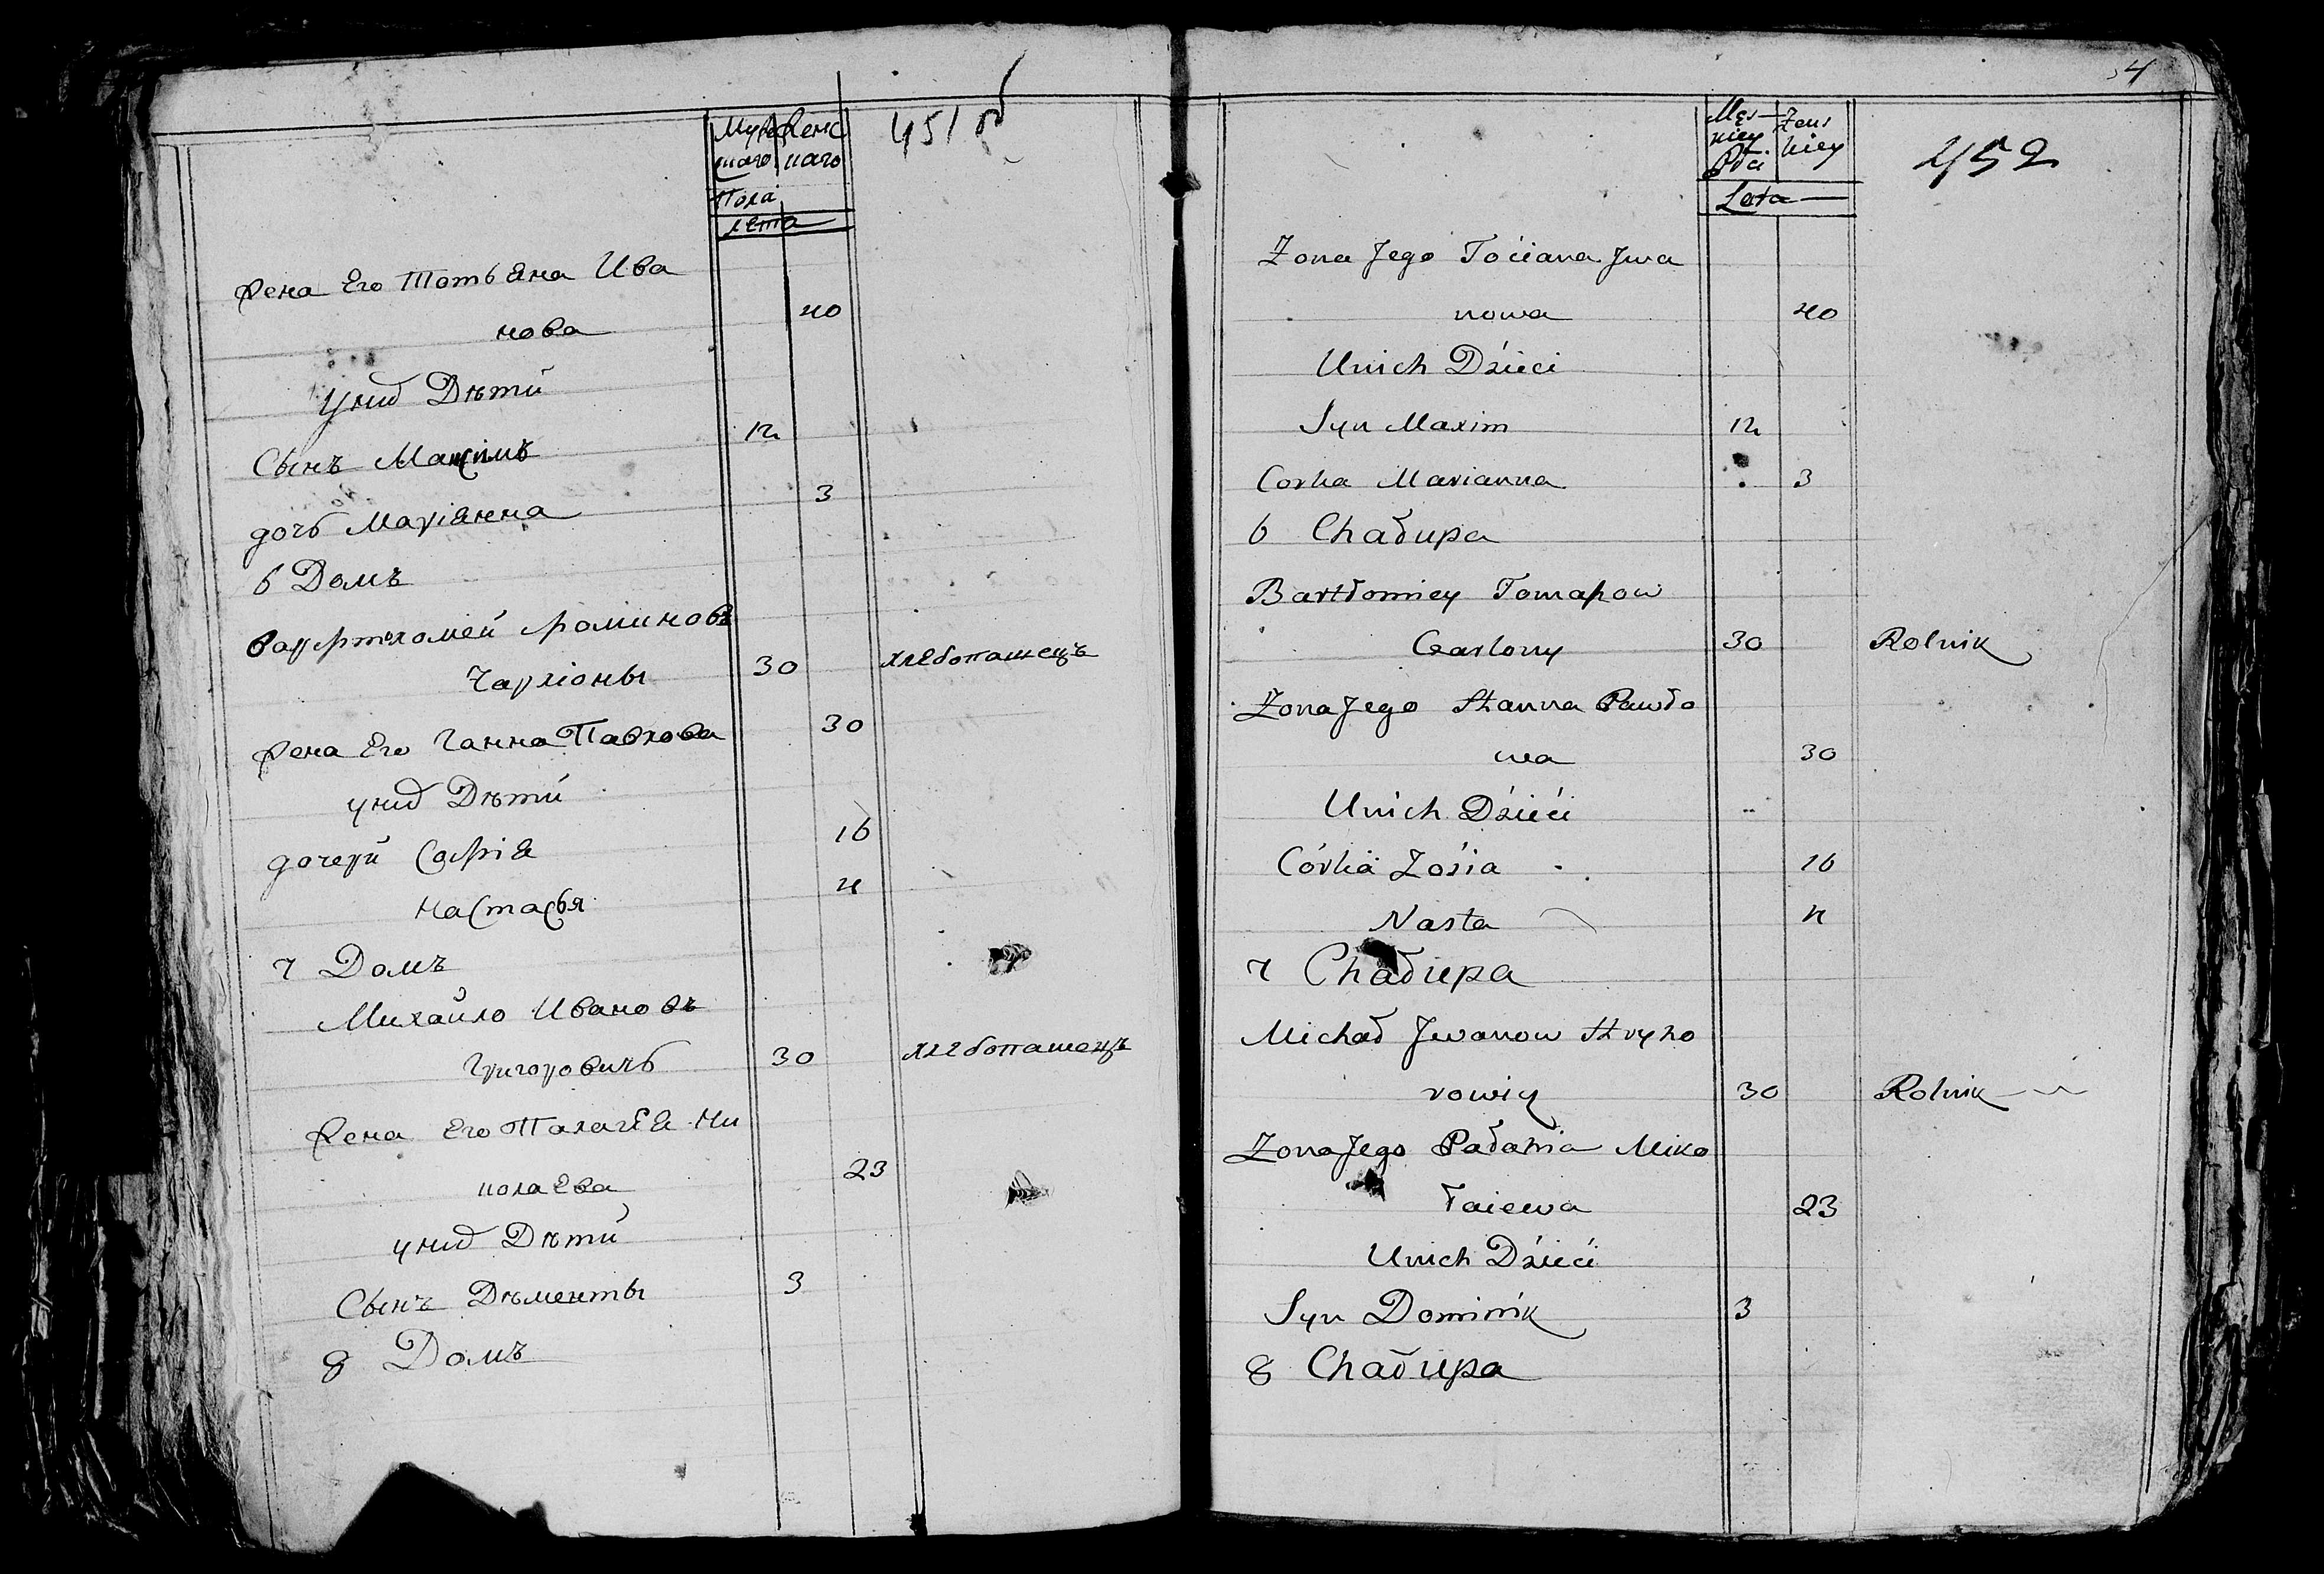 451 об
Мужескаго Женскаго
Пола
лета
Жена Его Татьяна Ива
нова 40
у них Дѣти
Сынъ Максимъ 12
дочь Маріянна 3
6 Домъ
30 хлебопашецъ
Жена Его Ганна Павлова 30
у них Дѣти
дочери Софія 16
Настасья 4
7 Домъ
Михайло Ивановъ
Григоровичь 30 хлебопашецъ
Жена Его Палагея Ни
колаева 23
у них Дѣти
Сынъ Дѣменты 3
8 Домъ
54
Męs-
kiey Żens
Płci kiey
Lata
452
Zona Jego Tociana Jwa
nowa 40
Unich Dzieci
Syn Maxim 12
Corka Marianna 3
6 Chałupa
Bartłomiey Tomaszow
30 Rolnik
Zona Jego Hanna Pawło
wa 30
Unich Dzieci
Córka Zosia 16
Nasta 4
7 Chałupa
Michał Jwanow Hryho
rowicz 30 Rolnik
Zona Jego Pałahia Miko
łaiewa 23
Unich Dzieci
Syn Dominik 3
8 Chałupa